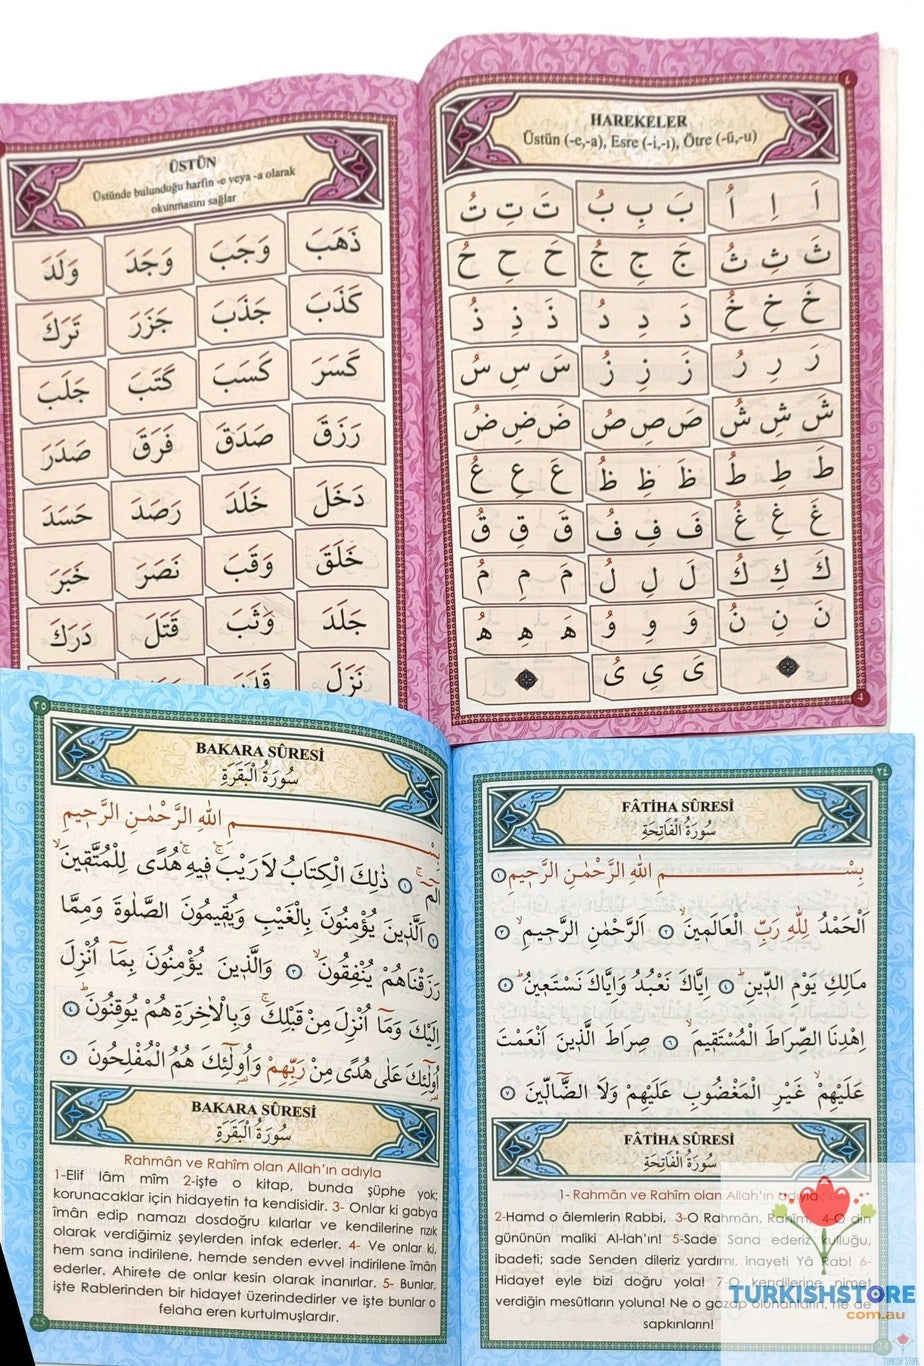 ÜSTÜN
Üstünde bulunduğu harfin -e veya -a olarak
okunmasını sağlar
ذَهَبَ وَجَبَ وَجَدَ وَلَدَ
كَذَبَ جَذَبَ جَزَرَ تَرَكَ
كَسَرَ كَسَبَ كَتَبَ جَلَبَ
رَزَقَ صَدَقَ فَرَقَ صَدَرَ
دَخَلَ خَلَدَ رَصَدَ حَسَدَ
خَلَقَ وَقَبَ نَصَرَ خَبَرَ
جَلَدَ وَثَبَ قَتَلَ دَرَكَ
نَزَلَ
٤
HAREKELER
Üstün (-e,-a), Esre (-i,-ı), Ötre (-ü,-u)
اَ اِ اُ بَ بِ بُ تَ تِ تُ
ثَ ثِ ثُ جَ جِ جُ حَ حِ حُ
خَ خِ خُ دَ دِ دُ ذَ ذِ ذُ
رَ رِ رُ زَ زِ زُ سَ سِ سُ
شَ شِ شُ صَ صِ صُ ضَ ضِ ضُ
طَ طِ طُ ظَ ظِ ظُ عَ عِ عُ
غَ غِ غُ فَ فِ فُ قَ قِ قُ
كَ كِ كُ لَ لِ لُ مَ مِ مُ
نَ نِ نُ وَ وِ وُ هَ هِ هُ
ىَ ىِ ىُ
4
٢٥
BAKARA SÛRESİ
سُورَةُ الْبَقَرَةِ
بِسْمِ اللهِ الرَّحْمٰنِ الرَّحِيمِ
الٓمٓ ۚ ١ ذٰلِكَ الْكِتَابُ لَا رَيْبَ ۚ فِيهِ ۚ هُدًى لِلْمُتَّقِينَ ۙ
٢ اَلَّذِينَ يُؤْمِنُونَ بِالْغَيْبِ وَيُقِيمُونَ الصَّلٰوةَ وَمِمَّا
رَزَقْنَاهُمْ يُنْفِقُونَ ۙ ٣ وَالَّذِينَ يُؤْمِنُونَ بِمَٓا اُنْزِلَ
اِلَيْكَ وَمَٓا اُنْزِلَ مِنْ قَبْلِكَ ۚ وَبِالْاٰخِرَةِ هُمْ يُوقِنُونَ ۜ ٤
اُو۬لٰٓئِكَ عَلٰى هُدًى مِنْ رَبِّهِمْ وَاُو۬لٰٓئِكَ هُمُ الْمُفْلِحُونَ ٥
BAKARA SÛRESİ
سُورَةُ الْبَقَرَةِ
Rahmân ve Rahîm olan Allah'ın adıyla
1-Elif lâm mîm 2-işte o kitap, bunda şüphe yok;
korunacaklar için hidayetin ta kendisidir. 3- Onlar ki gayba
îmân edip namazı dosdoğru kılarlar ve kendilerine rızık
olarak verdiğimiz şeylerden infak ederler. 4- Ve onlar ki,
hem sana indirilene, hemde senden evvel indirilene îmân
ederler. Ahirete de onlar kesin olarak inanırlar. 5- Bunlar,
işte Rablerinden bir hidayet üzerindedirler ve işte bunlar o
felaha eren kurtulmuşlardır.
25
٢٤
FÂTİHA SÛRESİ
سُورَةُ الْفَاتِحَةِ
بِسْمِ اللهِ الرَّحْمٰنِ الرَّحِيمِ ١
اَلْحَمْدُ لِلّٰهِ رَبِّ الْعَالَمِينَ ۙ ٢ اَلرَّحْمٰنِ الرَّحِيمِ ۙ ٣
مَالِكِ يَوْمِ الدِّينِ ۜ ٤ اِيَّاكَ نَعْبُدُ وَاِيَّاكَ نَسْتَعِينُ ۜ ٥
اِهْدِنَا الصِّرَاطَ الْمُسْتَقِيمَ ۙ ٦ صِرَاطَ الَّذِينَ اَنْعَمْتَ
عَلَيْهِمْ ۙ غَيْرِ الْمَغْضُوبِ عَلَيْهِمْ وَلَا الضَّٓالِّينَ ٧
FÂTİHA SÛRESİ
سُورَةُ الْفَاتِحَةِ
1- Rahmân ve Rahîm olan Allah'ın adıyla
2-Hamd o âlemlerin Rabbi, 3-O Rahmân, Rahîm, 4-O din
gününün maliki Al-lah'ın! 5-Sade Sana ederiz kulluğu,
ibadeti; sade Senden dileriz yardımı, inayeti Yâ Rab! 6-
Hidayet eyle bizi doğru yola! 7-O kendilerine nimet
verdiğin mesûtların yoluna! Ne o gazap olunanların, ne de
sapkınların!
TURKISHSTORE
com.au